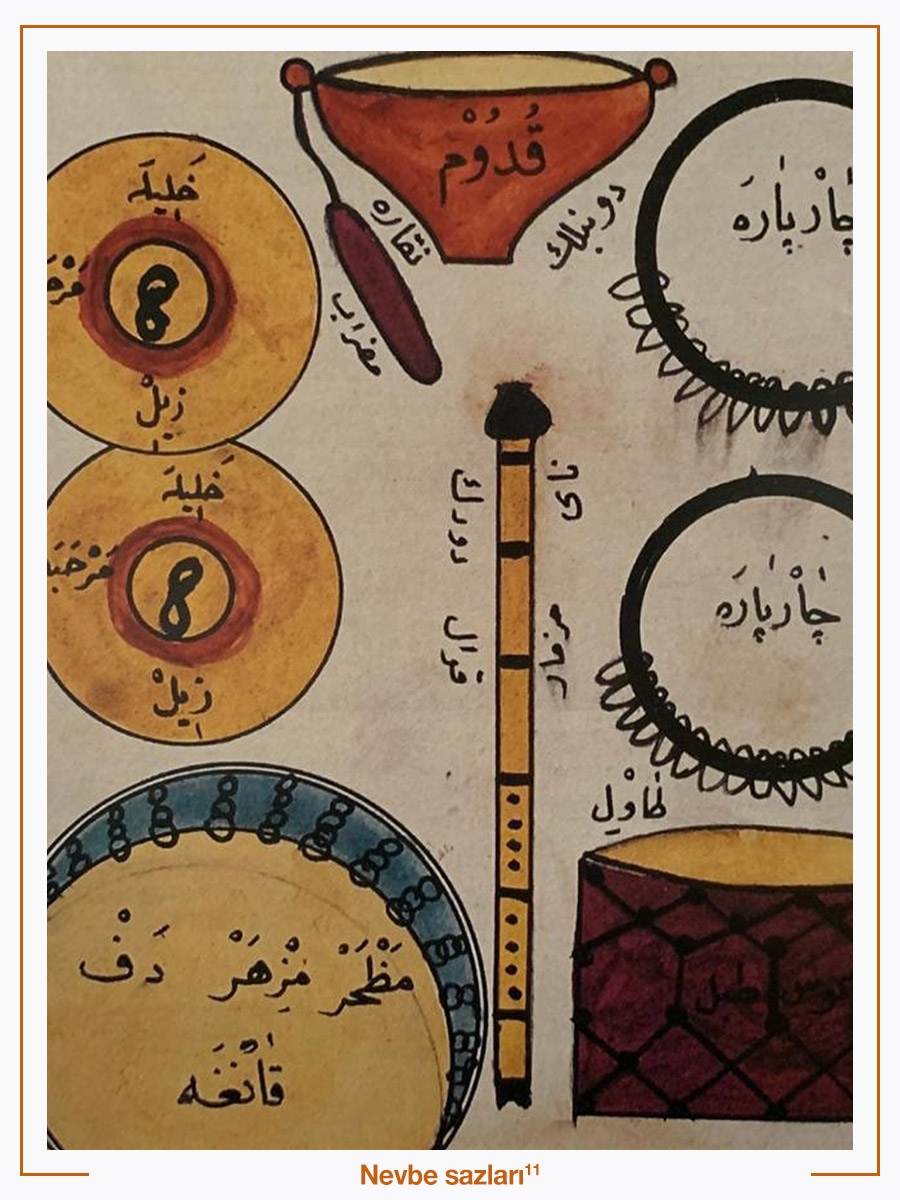 قُدُوْم
نقاره
دوبنلك
مضراب
چارْپاره
خليلَه
زيلْ
خليلَه
مَرْحَبَا
زيلْ
ناى
دودك
قوال
چارْپارَه
طاوْل
طبل
مَظْحَرْ مِزْهَرْ دَفْ
Nevbe sazları¹¹